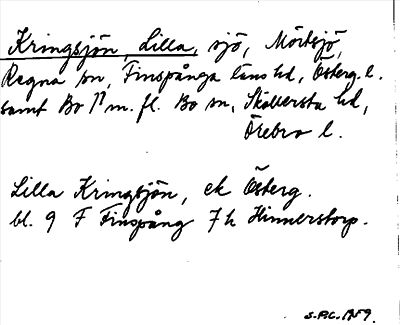 Kringsjön, Lilla, sjö, Mörtsjö,
Regna sn, Finspånga läns hd, Österg. l.
samt Bo 1¹ m. fl. Bo sn, Sköllersta hd,
Örebro l.
Lilla Kringsjön, ek Österg.
bl. 9 F Finspång 7 h Hinnerstorp.
S.P.C. 1959.